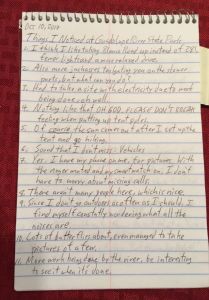 Oct 10, 2017
Things I Noticed at Guadalupe River State Park
1. I think I like taking Blanco Road up instead of 281.
Fewer lights and a more relaxed drive.
2. Also more jackasses tailgating you on the former
parts but what can you do?
3. Had to take a site with electricity due to most
being closed
4. Nothing like that OH GOD, PLEASE DON'T BREAK
feeling when putting up tent poles.
5. Of course the sun comes out after I set up the
tent and go hiking.
6. Sound that I don't miss: Vehicles
7. Yes, I have my phone on me, for pictures. With
the ringer muted and my smartwatch on, I don't
have to worry about missing calls.
8. There aren't many people here, which is nice.
9. Since I don't go outdoors as often as I should, I
find myself constantly wondering what all the
noises are.
10. Lots of butterflies about, even managed to take
pictures of a few.
11. More work being done by the river, be interesting
to see it when it's done.